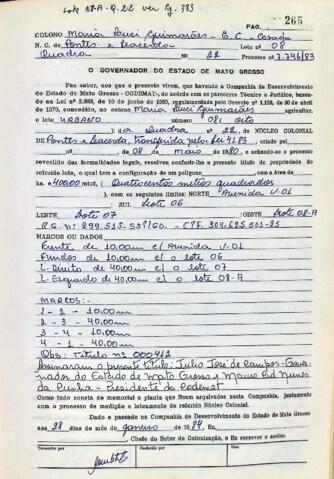 Lote 08-A-Q-22 ver Pg. 383
PAG. 265
COLONO Maria Luci Guimarães - E. C - Casada
N. C. de Pontes e Lacerda Lote nº 08
Quadra Nº 22 Processo nº 7.746/83
O GOVERNADOR DO ESTADO DE MATO GROSSO
Faz saber, aos que o presente virem, que havendo a Companhia de Desenvolvimento
do Estado de Mato Grosso - CODEMAT, de acordo com os pareceres Técnico e Jurídico, basea-
dos na Lei nº 2.933, de 10 de junho de 1969, regulamentada pelo Decreto nº 1.138, de 30 de abril
de 1970, concedido, ao colono Maria Luci Guimarães agricultor,
o lote URBANO 08 (oito
) da Quadra nº 22, do NÚCLEO COLONIAL
DE Pontes e Lacerda, transferida pela Lei 4183, criado pel
08 de maio de 1980, e achando-se o processo
revestido das formalidades legais, resolves conferir-lhe o presente título de propriedade do
referido lote, o qual tem a configuração de um polígono com a área de
ha 400,00 mts2, (Quatrocentos metros quadrados
), com os seguintes limites: NORTE Avenida V-01
SUL Lote 06
LESTE Lote 07 OESTE Lote 08-A
MARCOS OU DADOS
Frente de 10,00m c/ Avenida V-01
Fundos de 10,00m c/ o lote 06
L- Direito de 40,00m c/ o lote 07
L- Esquerdo de 40,00m c/ o lote 08-A
MARCOS:-
1 - 2 - 10,00m
2 - 3 - 40,00m
3 - 4 - 10,00m
4 - 1 - 40,00m
Obs: Título nº 000412
Assinaram o presente título: Julio José de Campos - Gover-
nador do Estado de Mato Grosso e Mauro Cid Nunes
da Cunha - Presidente da Codemat
Como tudo consta do memorial e planta que ficam arquivados nesta Companhia, juntamente
com o processo de medição e loteamento do referido Núcleo Colonial.
Dado e passado na Companhia de Desenvolvimento do Estado de Mato Grosso
aos 28 dias do mês de janeiro de 1984. Eu
Chefe do Setor de Colonização, o fiz escrever e assino.
Transcrito por Conferido por